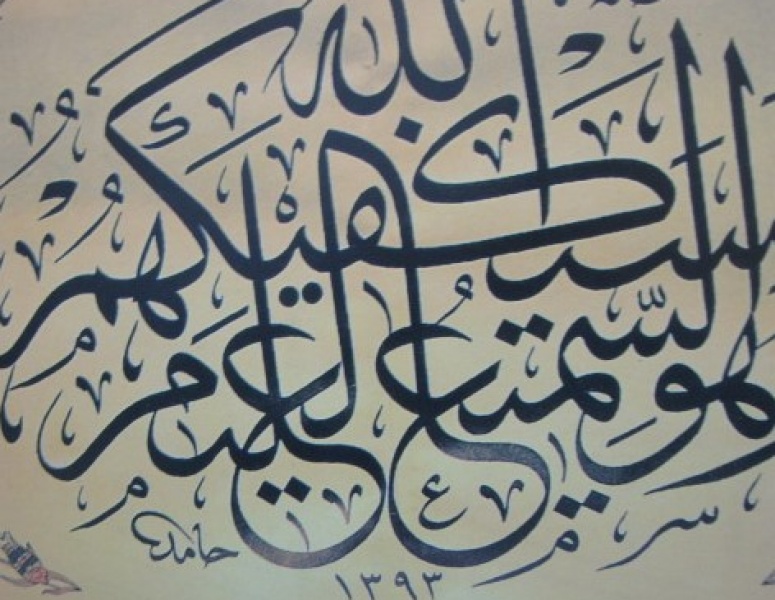 فسيكفيكهم الله
وهو السّميع العليم
حامد
١٣٩٣